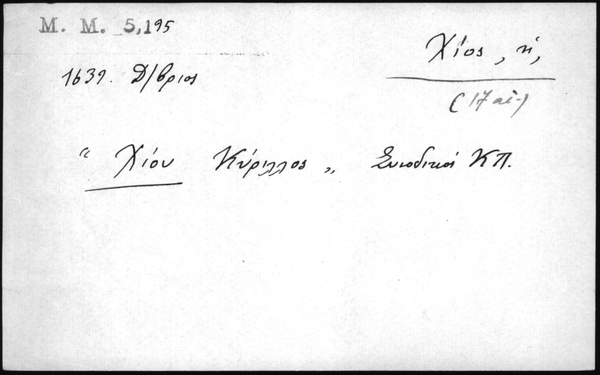 M. M. 5,195
Χίος, ἡ,
1639. Δ/βριος
(17 αἰ.)
“ Χίου Κύριλλος „ Συνοδικοί ΚΠ.